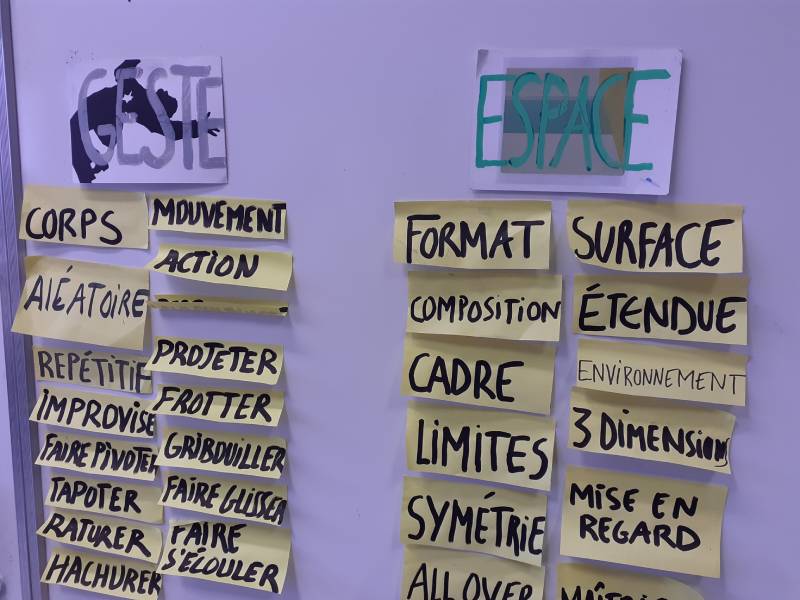 GESTE
CORPS
ALÉATOIRE
REPÉTITIF
IMPROVISE
FAIRE PIVOTER
TAPOTER
RATURER
HACHURER
MOUVEMENT
ACTION
PROJETER
FROTTER
GRIBOUILLER
FAIRE GLISSER
FAIRE
S'ÉCOULER
ESPACE
FORMAT
COMPOSITION
CADRE
LIMITES
SYMÉTRIE
ALL OVER
SURFACE
ÉTENDUE
ENVIRONNEMENT
3 DIMENSIONS
MISE EN
REGARD